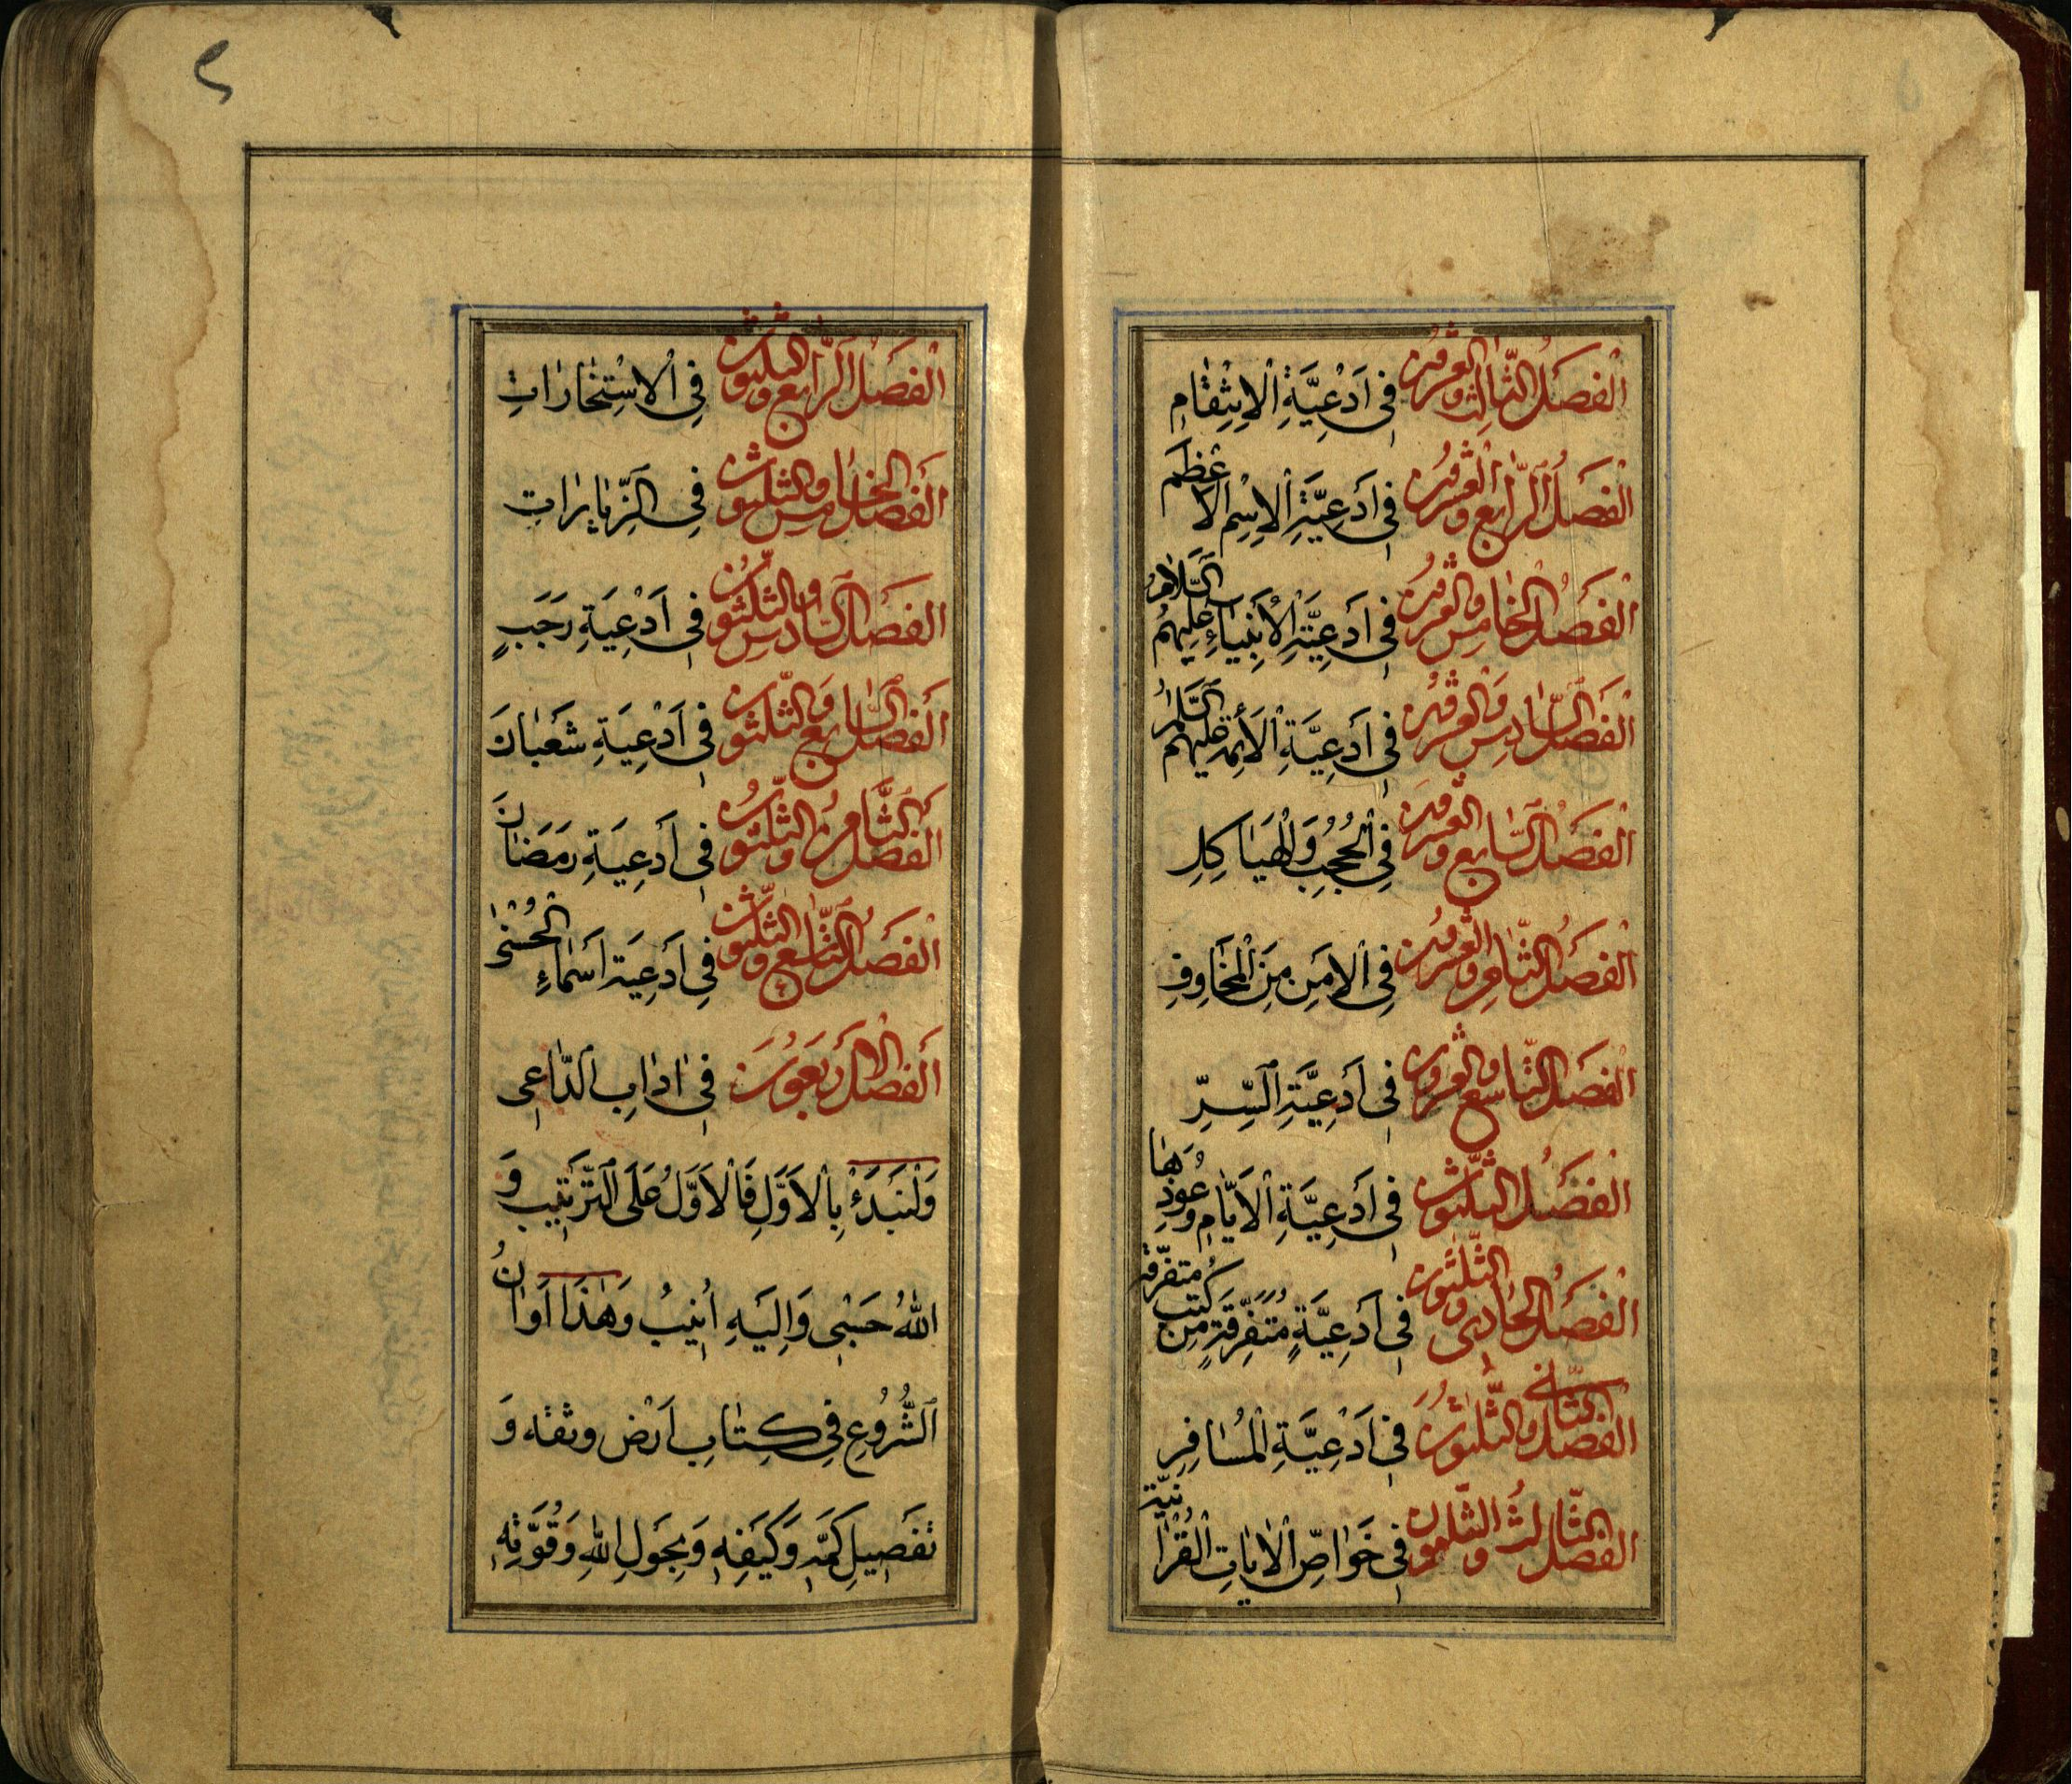 الفصل الثالث والعشرون في ادعية الانتقام
الفصل الرابع والعشرون في ادعية الاسم الاعظم
الفصل الخامس والعشرون في ادعية الانبياء عليهم السلام
الفصل السادس والعشرون في ادعية الائمة عليهم السلام
الفصل السابع والعشرون في الحجب والهياكل
الفصل الثامن والعشرون في الامن من المخاوف
الفصل التاسع والعشرون في ادعية السر
الفصل الثلثون في ادعية الايام وعوذها
الفصل الحادي والثلثون في ادعية متفرقة من كتب متفرقة
الفصل الثاني والثلثون في ادعية المسافر
الفصل الثالث والثلثون في خواص الايات القرانية
الفصل الرابع والثلثون في الاستخارات
الفصل الخامس والثلثون في الزيارات
الفصل السادس والثلثون في ادعية رجب
الفصل السابع والثلثون في ادعية شعبان
الفصل الثامن والثلثون في ادعية رمضان
الفصل التاسع والثلثون في ادعية اسماء الحسنى
الفصل الاربعون في اداب الداعي
ولنبدء بالاول فالاول على الترتيب و
الله حسبي واليه انيب وهذا اوان
الشروع في كتاب ارض وثقه و
تفصيل كمه وكيفه وبحول الله وقوته